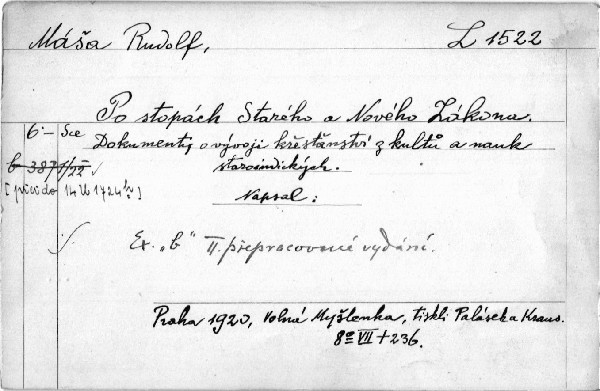 Máša Rudolf,
L 1522
Po stopách Starého a Nového Zákona.
6·– Sce
Dokumenty o vývoji křesťanství z kultů a nauk
b 387/22
staroindických.
Napsal:
Ex. „b" II. přepracované vydání.
Praha 1920, Volná Myšlenka, tiskli Palásek a Kraus.
8° VII + 236.